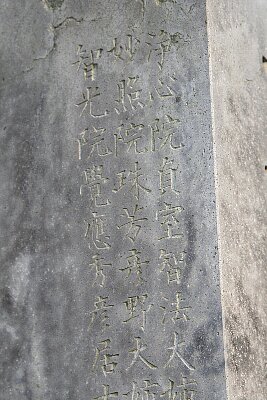 浄心院貞室智法大姉
妙照院珠芳秀野大姉
智光院覺應秀彦居士